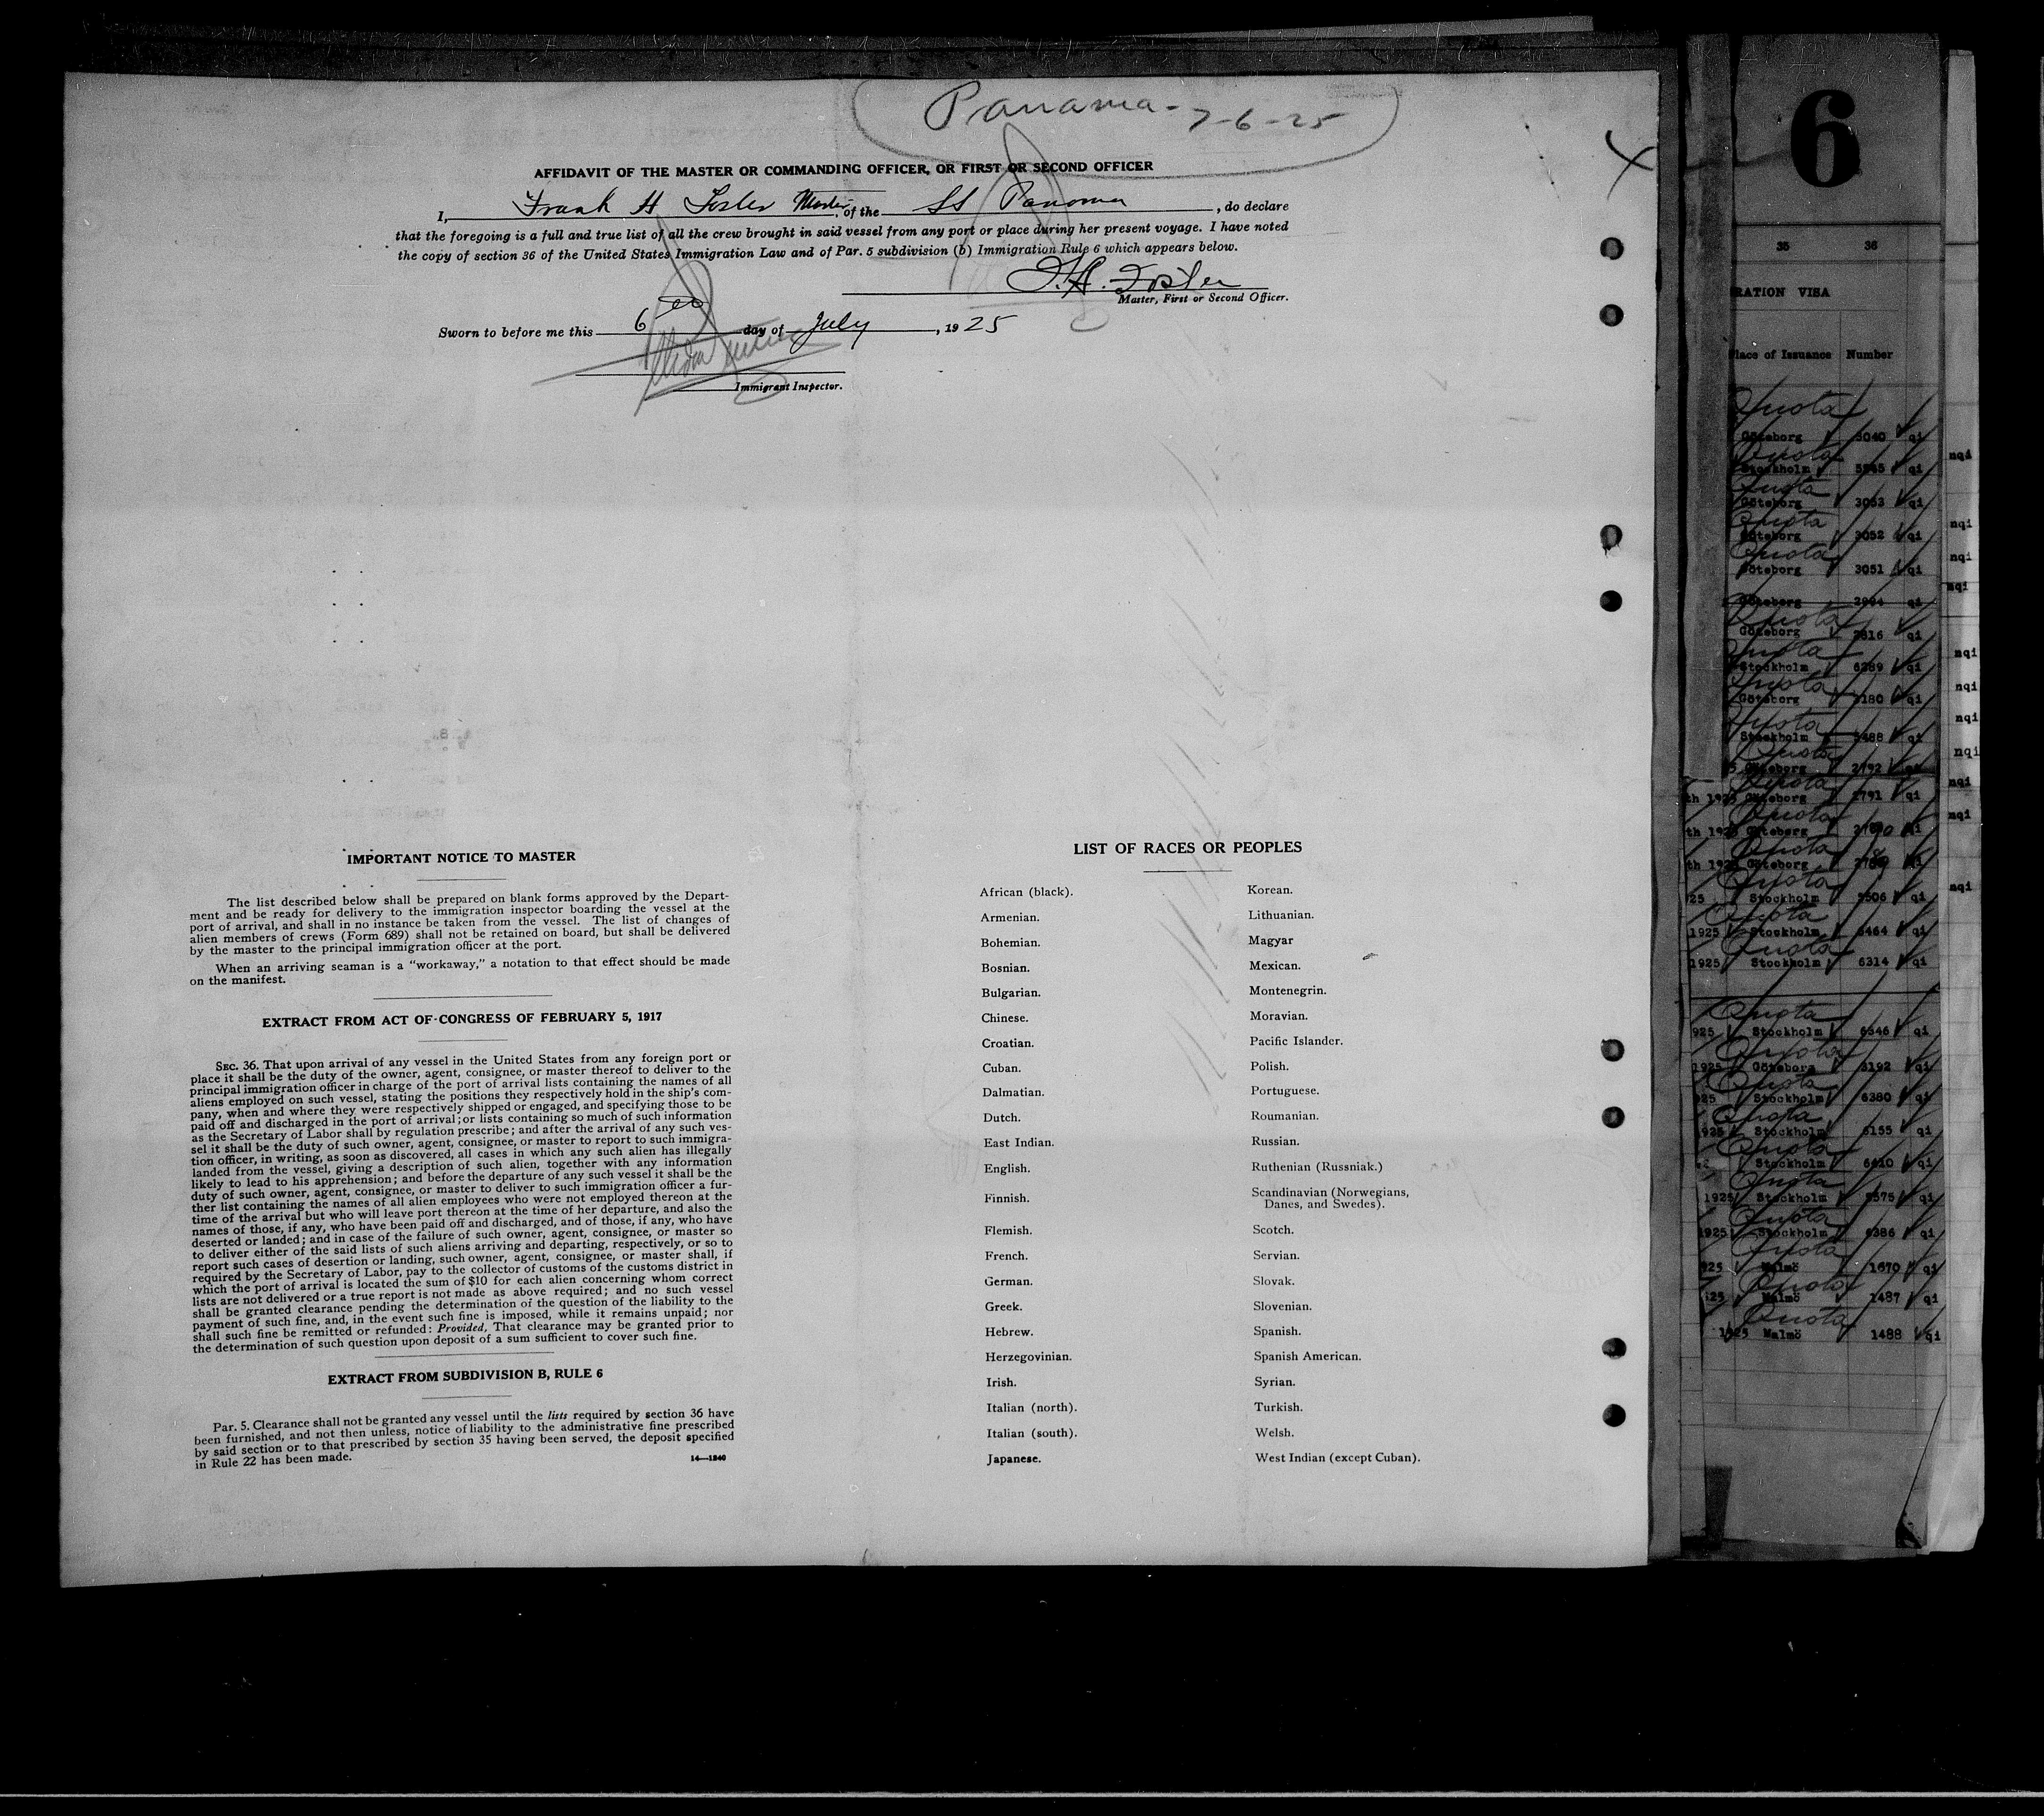 Panama - 7-6-25
AFFIDAVIT OF THE MASTER OR COMMANDING OFFICER, OR FIRST OR SECOND OFFICER
I, Frank H Foster Master, of the SS Panama, do declare
that the foregoing is a full and true list of all the crew brought in said vessel from any port or place during her present voyage. I have noted
the copy of section 36 of the United States Immigration Law and of Par. 5 subdivision (b) Immigration Rule 6 which appears below.
F.H. Foster
Master, First or Second Officer.
Sworn to before me this 6 day of July, 1925
Immigrant Inspector.
IMPORTANT NOTICE TO MASTER
The list described below shall be prepared on blank forms approved by the Depart-
ment and be ready for delivery to the immigration inspector boarding the vessel at the
port of arrival, and shall in no instance be taken from the vessel. The list of changes of
alien members of crews (Form 689) shall not be retained on board, but shall be delivered
by the master to the principal immigration officer at the port.
When an arriving seaman is a "workaway," a notation to that effect should be made
on the manifest.
EXTRACT FROM ACT OF CONGRESS OF FEBRUARY 5, 1917
SEC. 36. That upon arrival of any vessel in the United States from any foreign port or
place it shall be the duty of the owner, agent, consignee, or master thereof to deliver to the
principal immigration officer in charge of the port of arrival lists containing the names of all
aliens employed on such vessel, stating the positions they respectively hold in the ship's com-
pany, when and where they were respectively shipped or engaged, and specifying those to be
paid off and discharged in the port of arrival; or lists containing so much of such information
as the Secretary of Labor shall by regulation prescribe; and after the arrival of any such ves-
sel it shall be the duty of such owner, agent, consignee, or master to report to such immigra-
tion officer, in writing, as soon as discovered, all cases in which any such alien has illegally
landed from the vessel, giving a description of such alien, together with any information
likely to lead to his apprehension; and before the departure of any such vessel it shall be the
duty of such owner, agent, consignee, or master to deliver to such immigration officer a fur-
ther list containing the names of all alien employees who were not employed thereon at the
time of the arrival but who will leave port thereon at the time of her departure, and also the
names of those, if any, who have been paid off and discharged, and of those, if any, who have
deserted or landed; and in case of the failure of such owner, agent, consignee, or master so
to deliver either of the said lists of such aliens arriving and departing, respectively, or so to
report such cases of desertion or landing, such owner, agent, consignee, or master shall, if
required by the Secretary of Labor, pay to the collector of customs of the customs district in
which the port of arrival is located the sum of $10 for each alien concerning whom correct
lists are not delivered or a true report is not made as above required; and no such vessel
shall be granted clearance pending the determination of the question of the liability to the
payment of such fine, and, in the event such fine is imposed, while it remains unpaid; nor
shall such fine be remitted or refunded: Provided, That clearance may be granted prior to
the determination of such question upon deposit of a sum sufficient to cover such fine.
EXTRACT FROM SUBDIVISION B, RULE 6
Par. 5. Clearance shall not be granted any vessel until the lists required by section 36 have
been furnished, and not then unless, notice of liability to the administrative fine prescribed
by said section or to that prescribed by section 35 having been served, the deposit specified
in Rule 22 has been made.
14—1840
LIST OF RACES OR PEOPLES
African (black).
Armenian.
Bohemian.
Bosnian.
Bulgarian.
Chinese.
Croatian.
Cuban.
Dalmatian.
Dutch.
East Indian.
English.
Finnish.
Flemish.
French.
German.
Greek.
Hebrew.
Herzegovinian.
Irish.
Italian (north).
Italian (south).
Japanese.
Korean.
Lithuanian.
Magyar
Mexican.
Montenegrin.
Moravian.
Pacific Islander.
Polish.
Portuguese.
Roumanian.
Russian.
Ruthenian (Russniak.)
Scandinavian (Norwegians,
Danes, and Swedes).
Scotch.
Servian.
Slovak.
Slovenian.
Spanish.
Spanish American.
Syrian.
Turkish.
Welsh.
West Indian (except Cuban).
6
35 36
RATION VISA
Place of Issuance Number
Quota
Göteborg 3040 qi
Quota
Stockholm qi
Quota
Göteborg 3053 qi
Quota
Göteborg 3052 qi
Quota
Göteborg 3051 qi
Göteborg qi
Quota
Göteborg 2816 qi
Quota
Stockholm 6289 qi
Quota
Göteborg qi
Quota
Stockholm qi
Quota
Göteborg 2792
Quota
th 1925 Göteborg 2791 qi
Quota
th 1925 Göteborg qi
Quota
th 1925 Göteborg
Quota
25 Stockholm qi
Quota
1925 Stockholm qi
Quota
1925 Stockholm 6314 qi
Quota
925 Stockholm qi
Quota
1925 Göteborg 3192 qi
Quota
925 Stockholm 6380 qi
Quota
1925 Stockholm qi
Quota
Stockholm qi
Quota
1925 Stockholm qi
Quota
1925 Stockholm 6386 qi
Quota
925 Malmö 1670 qi
Quota
25 Malmö 1487 qi
Quota
1925 Malmö 1488 qi
nqi
nqi
nqi
nqi
nqi
nqi
nqi
nqi
nqi
nqi
nqi